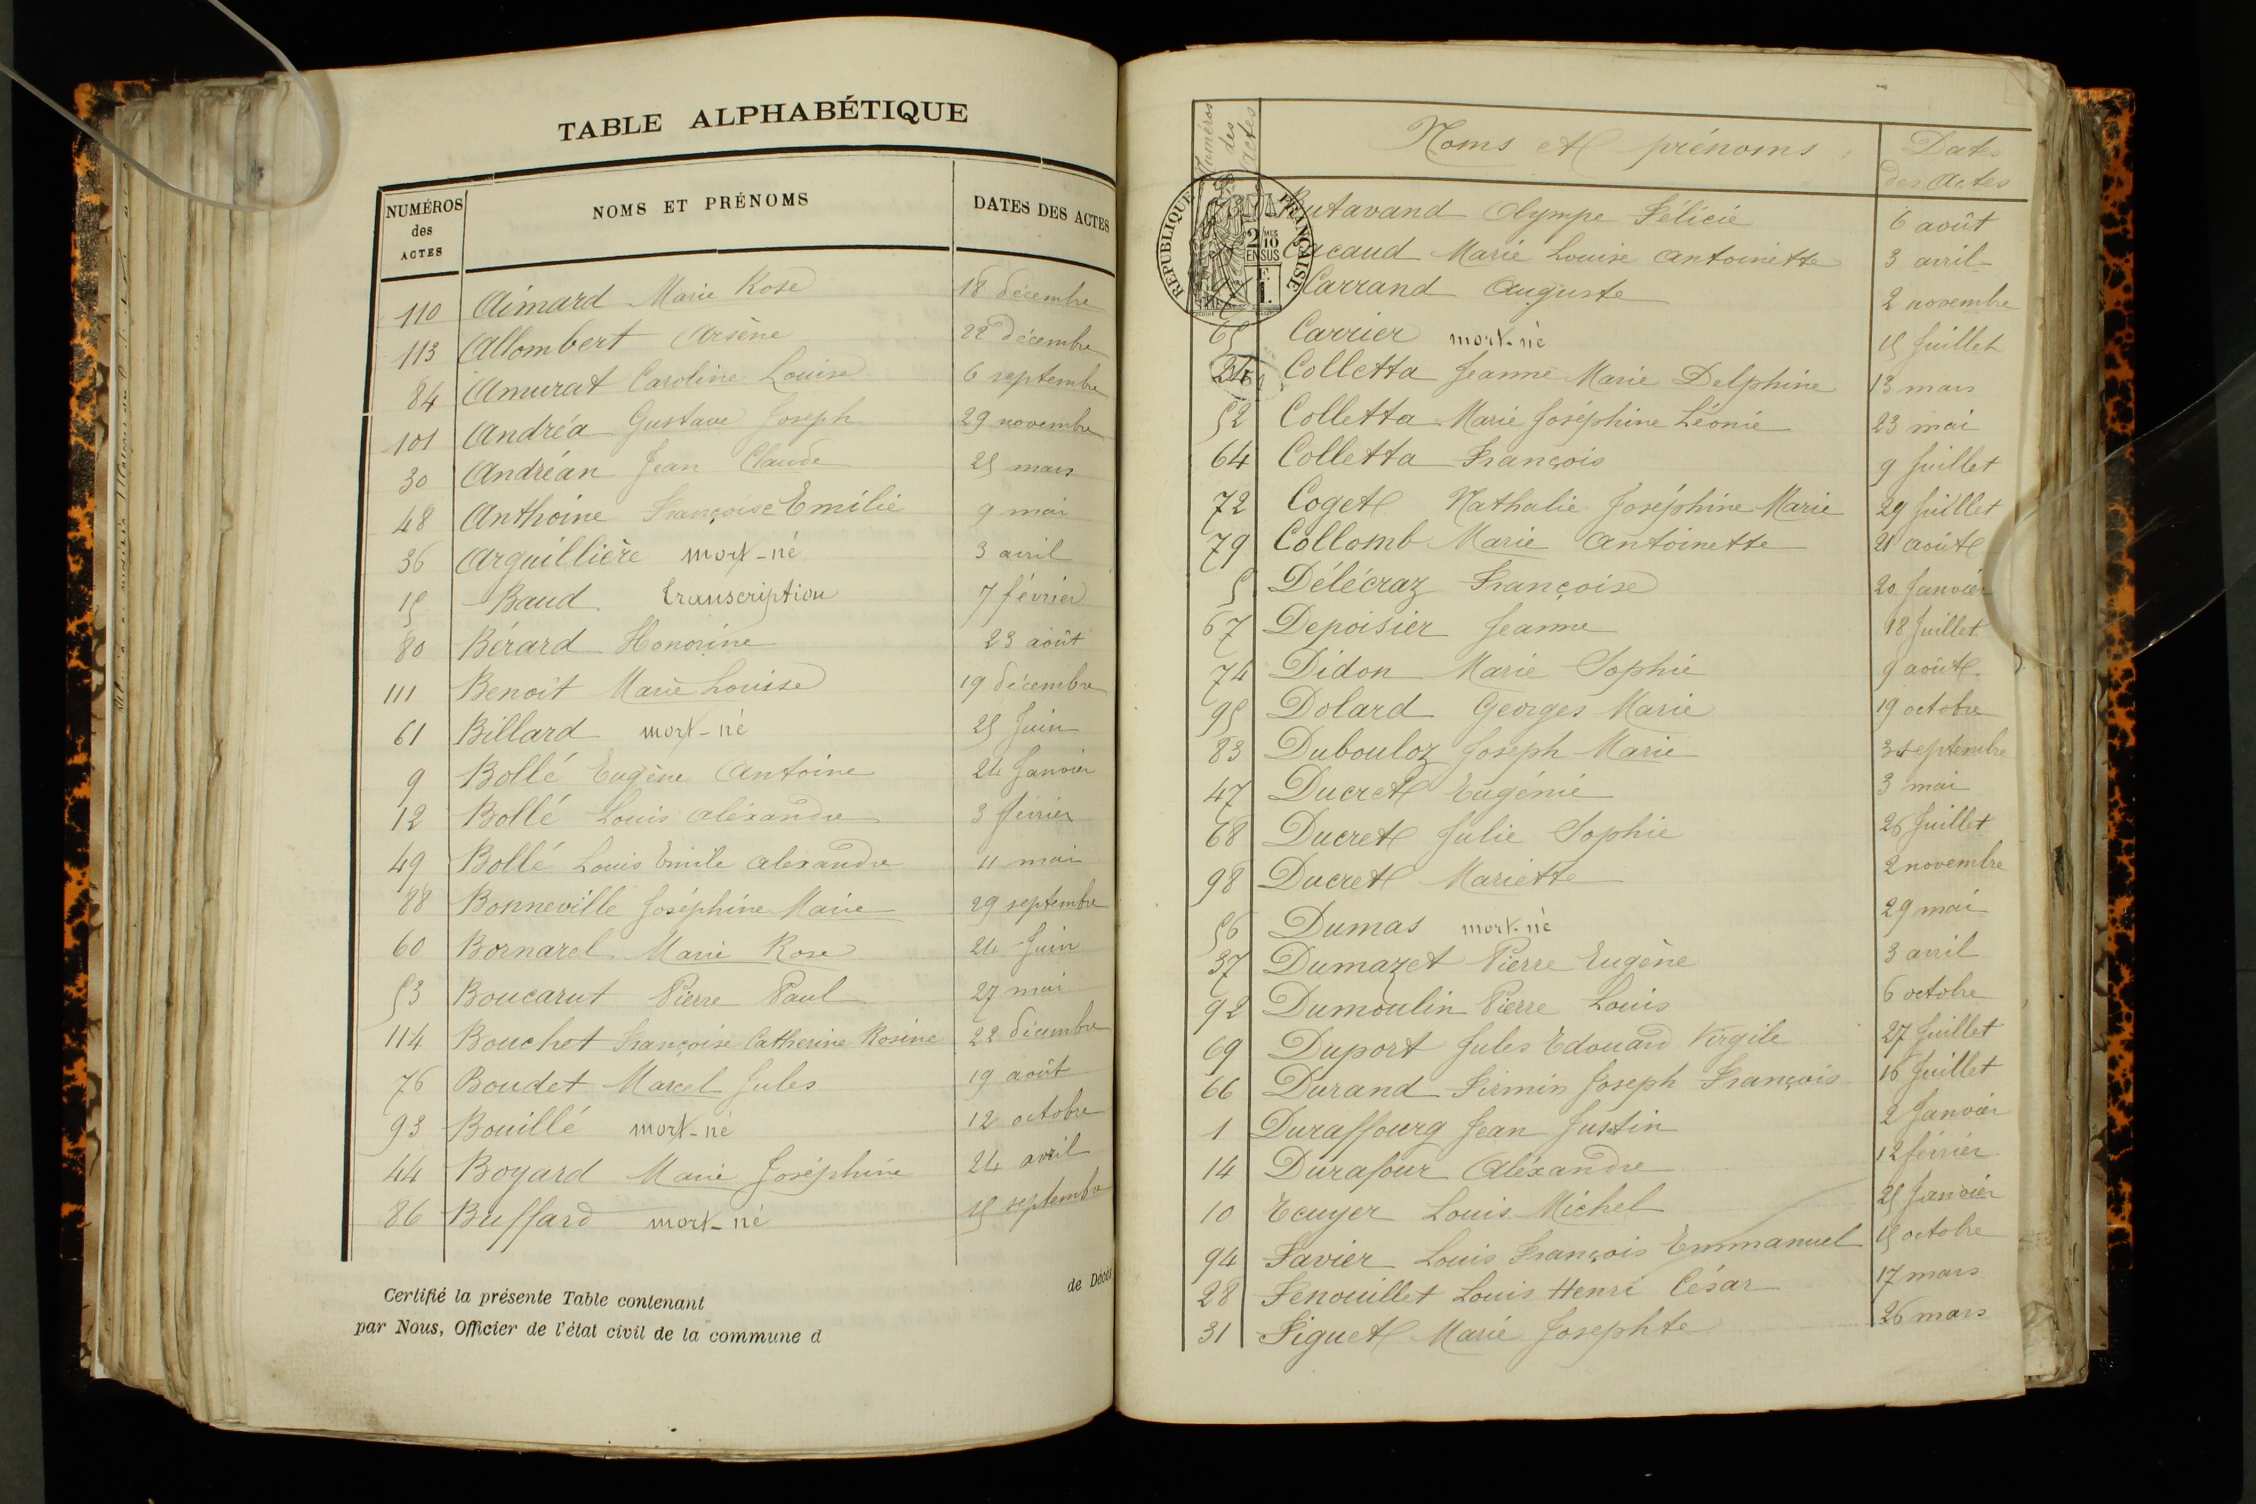 TABLE ALPHABÉTIQUE
NUMÉROS des ACTES NOMS ET PRÉNOMS DATES DES ACTES
110 Aimard Marie Rose 18 décembre
113 Allombert Arsène 22 décembre
84 Amurat Caroline Louise 6 septembre
101 Andréa Gustave Joseph 29 novembre
30 Andréan Jean Claude 25 mars
48 Anthoine Françoise Emilie 9 mai
36 Arguillière mort-né 3 avril
15 Baud transcription 7 février
80 Bérard Honorine 23 août
111 Benoit Marie Louise 19 décembre
61 Billard mort-né 25 Juin
9 Bollé Eugène Antoine 24 Janvier
12 Bollé Louis Aléxandre 3 février
49 Bollé Louis Emile Alexandre 11 mai
88 Bonneville Joséphine Marie 29 septembre
60 Bornarel Marie Rose 24 Juin
53 Boucarut Pierre Paul 27 mai
114 Bouchet Françoise Catherine Rosine 22 décembre
76 Boudet Marcel Jules 19 août
93 Bouillé mort-né 12 octobre
44 Boyard Marie Joséphine 24 avril
86 Buffard mort-né 15 septembre
Certifié la présente Table contenant de Décès
par Nous, Officier de l'état civil de la commune d
Numéros des Actes Noms et prénoms Dates des Actes
RÉPUBLIQUE FRANÇAISE
2/10 MES
EN SUS
Butavand Olympe Félicie 6 août
Cacaud Marie Louise Antoinette 3 avril
Carrand Auguste 2 novembre
65 Carrier mort-né 15 Juillet
24 Colletta Jeanne Marie Delphine 13 mars
52 Colletta Marie Joséphine Léonie 23 mai
64 Colletta François 9 Juillet
72 Coget Nathalie Joséphine Marie 29 Juillet
79 Collomb Marie Antoinette 21 août
5 Délécraz Françoise 20 Janvier
67 Depoisier Jeanne 18 Juillet
74 Didon Marie Sophie 9 août
95 Dolard Georges Marie 19 octobre
83 Dubouloz Joseph Marie 3 septembre
47 Ducret Eugénie 3 mai
68 Ducret Julie Sophie 26 Juillet
98 Ducret Mariette 2 novembre
56 Dumas mort-né 29 mai
37 Dumazet Pierre Eugène 3 avril
92 Dumoulin Pierre Louis 6 octobre
69 Duport Jules Edouard Virgile 27 Juillet
66 Durand Firmin Joseph François 16 Juillet
1 Duraffourg Jean Justin 2 Janvier
14 Durafour Aléxandre 12 février
10 Ecuyer Louis Michel 25 Janvier
94 Favier Louis François Emmanuel 15 octobre
28 Fenouillet Louis Henri César 17 mars
31 Figuet Marie Josephte 26 mars